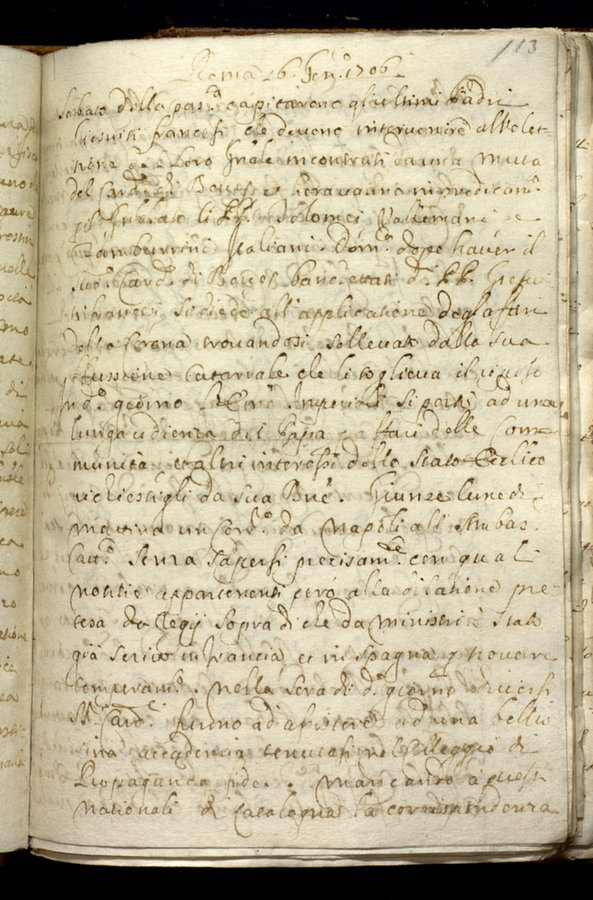 113
Roma 16. Gen.o 1706
Sabato della pas.ta capitarono gl'ultimi Padri
Giesuiti francesi che devono intervenire all'elet-
tione del loro Gn̄ale incontrati da una muta
del Card.
li PP. Tolomei Vallemani e
Tamburrini Italiani. Dom.ca dopo haver il
sud.o Card.e di banchettati d.i PP. Giesuiti
francesi si diede all'applicatione degl'affari
della trovandosi sollevato dalla sua
flussione Catarrale che li toglieva il riposo
d.o giorno Imperiali si portò ad una
lunga udienza del Papa affari delle Com-
munità et altri interessi dello Stato Ecc.lico
richiestigli da Sua Bnē. Giunse lunedì
mattina un Corr.o da Napoli all'Ambas.
Catt.o senza sapersi precisam.te con quali
notitie appartenenti però alla dilatione pre-
tesa da Regij sopra di che da Ministri è stato
già scritto in Francia et in Spagna p. trovare
temperam.to. Nella sera di d.o giorno diversi
SS.ri Card.i furono ad assistere ad una bellis
sima accademia tenutasi nel Colleggio di
Propaganda fide. Mancando a questi
nationali di Catalogna la corrispondenza